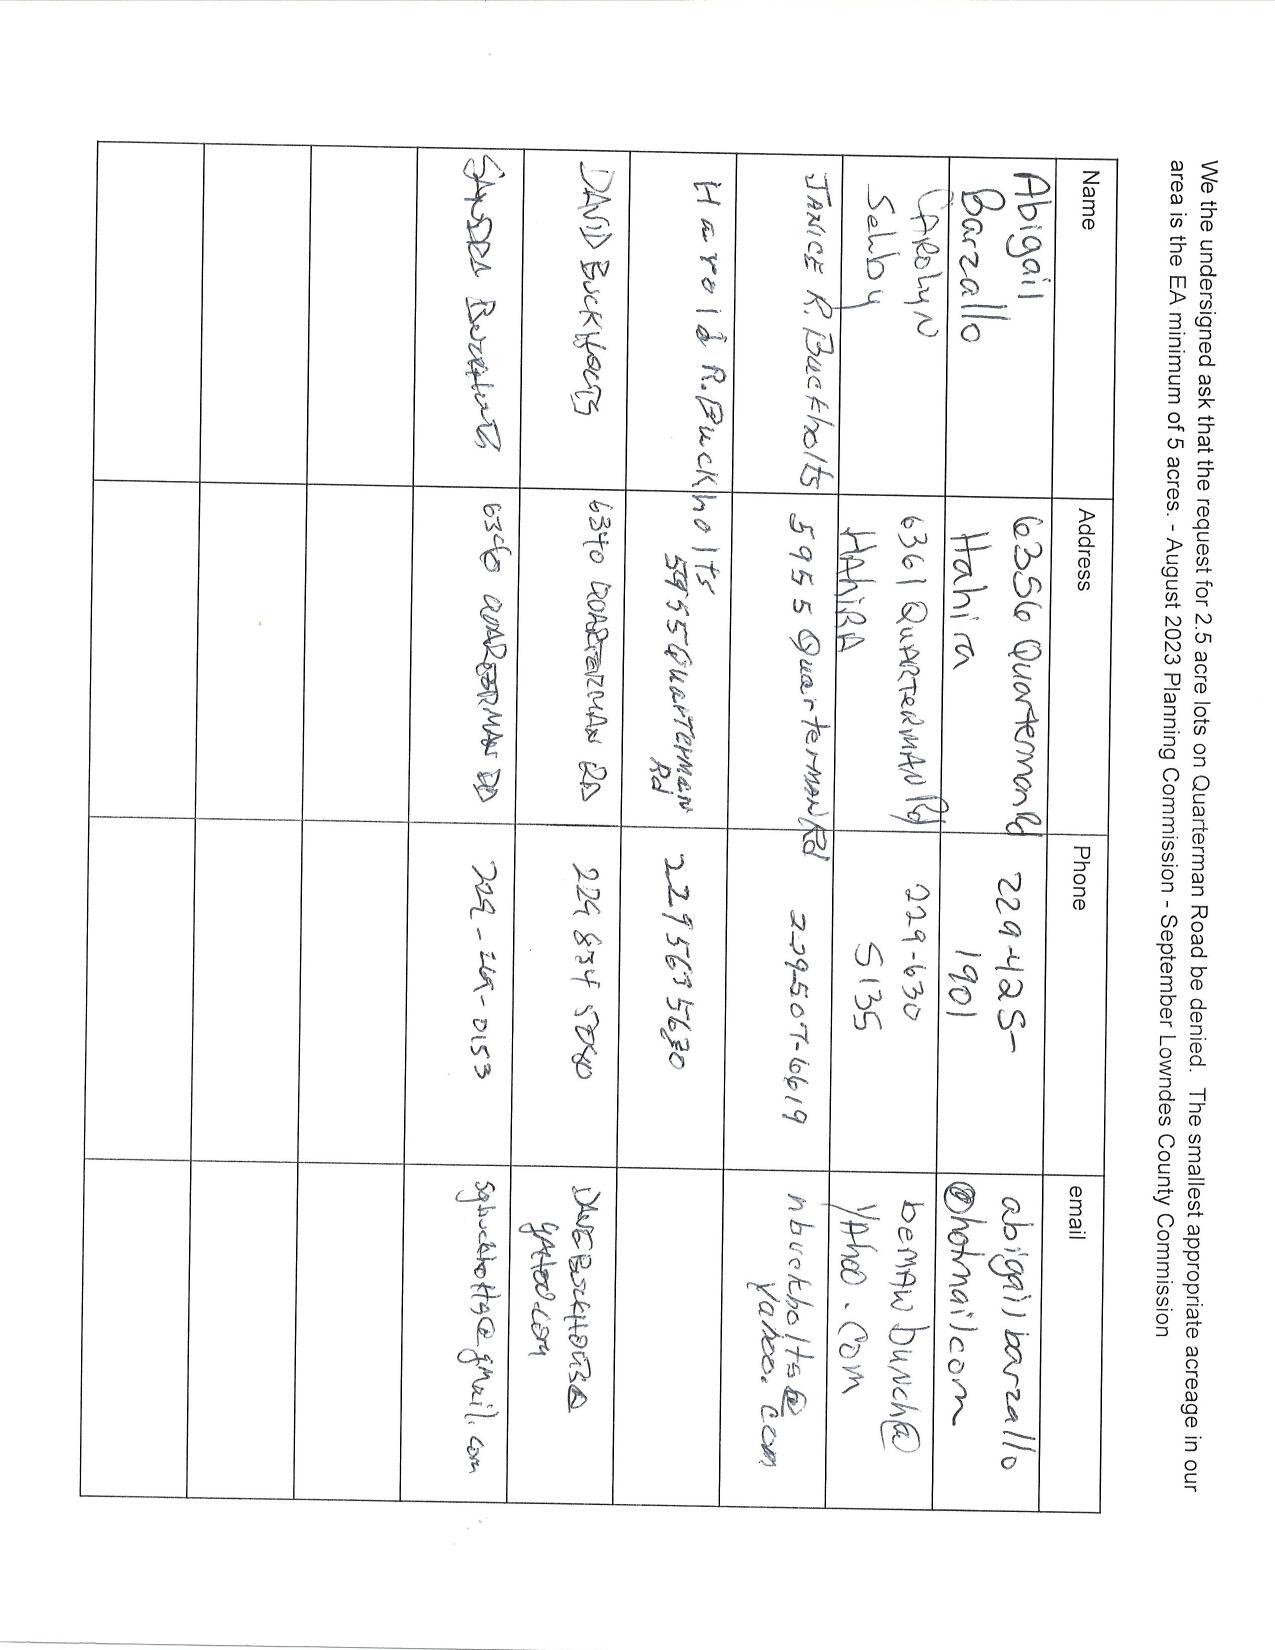 We the undersigned ask that the request for 2.5 acre lots on Quarterman Road be denied. The smallest appropriate acreage in our
area is the EA minimum of 5 acres. - August 2023 Planning Commission - September Lowndes County Commission
Name Address Phone email
Abigail 6356 Quarterman Rd 229-425- abigailbarzallo
Barzallo Hahira 1901 @hotmail.com
CAROLYN 6361 QUARTERMAN Rd 229-630 bemawbunch@
Selby HAHiRA 5135 YAhoo.com
JANICE R. Buckholts 5955 Quarterman Rd 229-507-6619 nbuckholts@
yahoo.com
Harold R. Buckholts 5955 Quarterman 229 563 5630
Rd
DAVID BUCKHOLTS 6340 QUARTERMAN RD 229 834 5040
SANDRA Buckholts 6340 QUARTERMAN RD 229-269-0153 sgbuckholts@gmail.com